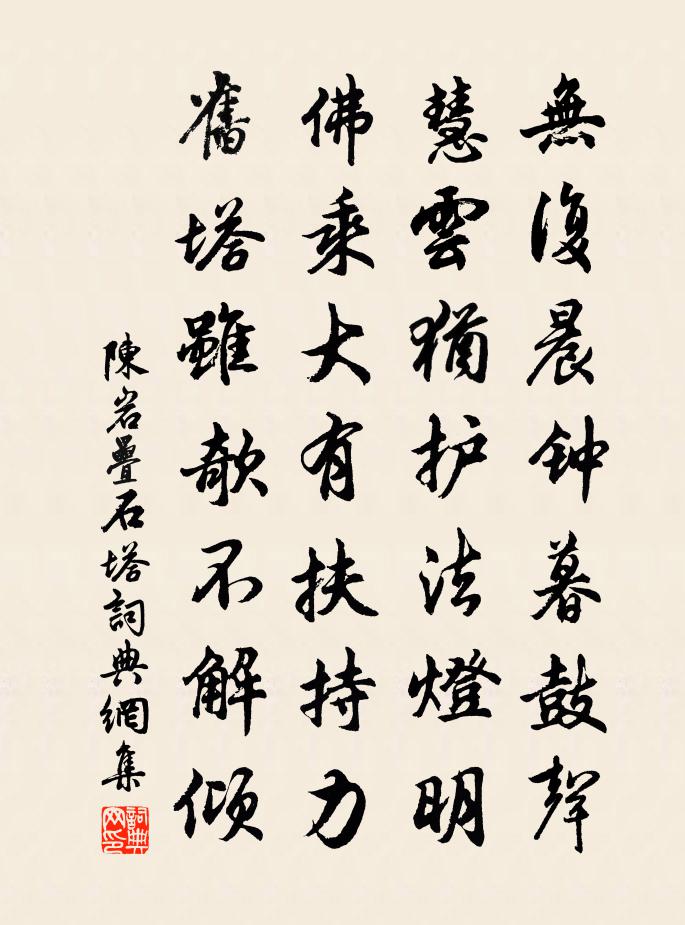 無復晨钟暮鼓聲
慧雲猶护法燈明
佛乘大有扶持力
舊塔雖欹不解倾
陳岩疊石塔詞典網集
詞典网印